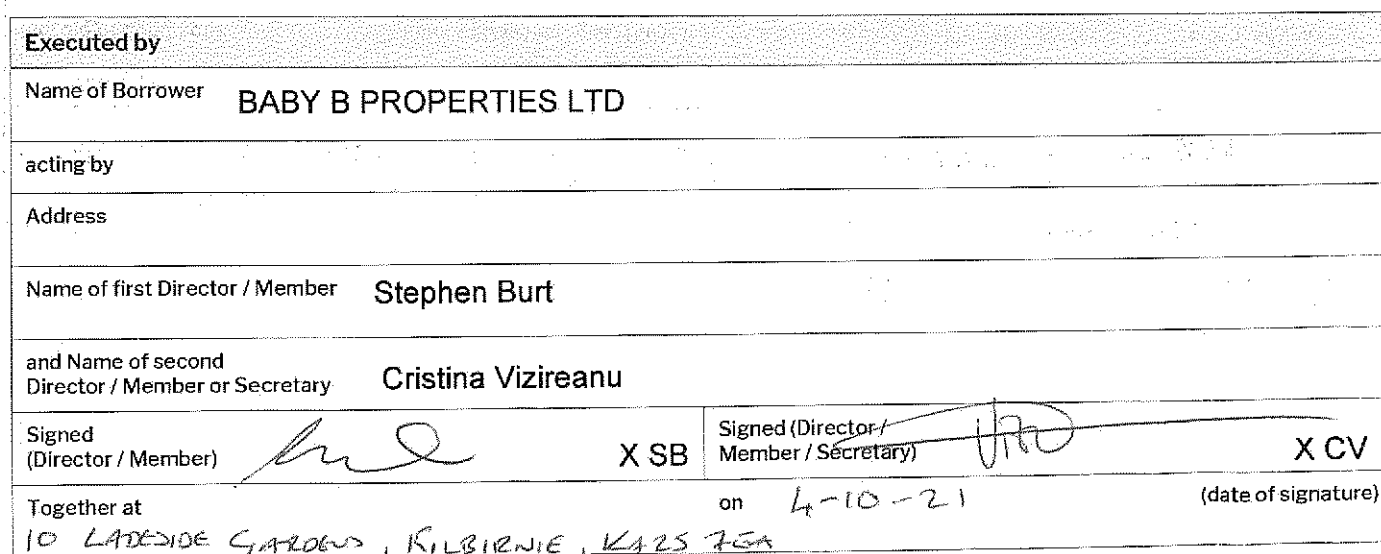 Executed by
Name of Borrower BABY B PROPERTIES LTD
acting by
Address
Name of first Director / Member Stephen Burt
and Name of second
Director / Member or Secretary Cristina Vizireanu
Signed
(Director / Member) X SB
Signed (Director /
Member / Secretary) X CV
Together at
10 LADESIDE GARDENS, KILBIRNIE, KA25 7EA
on 4-10-21 (date of signature)